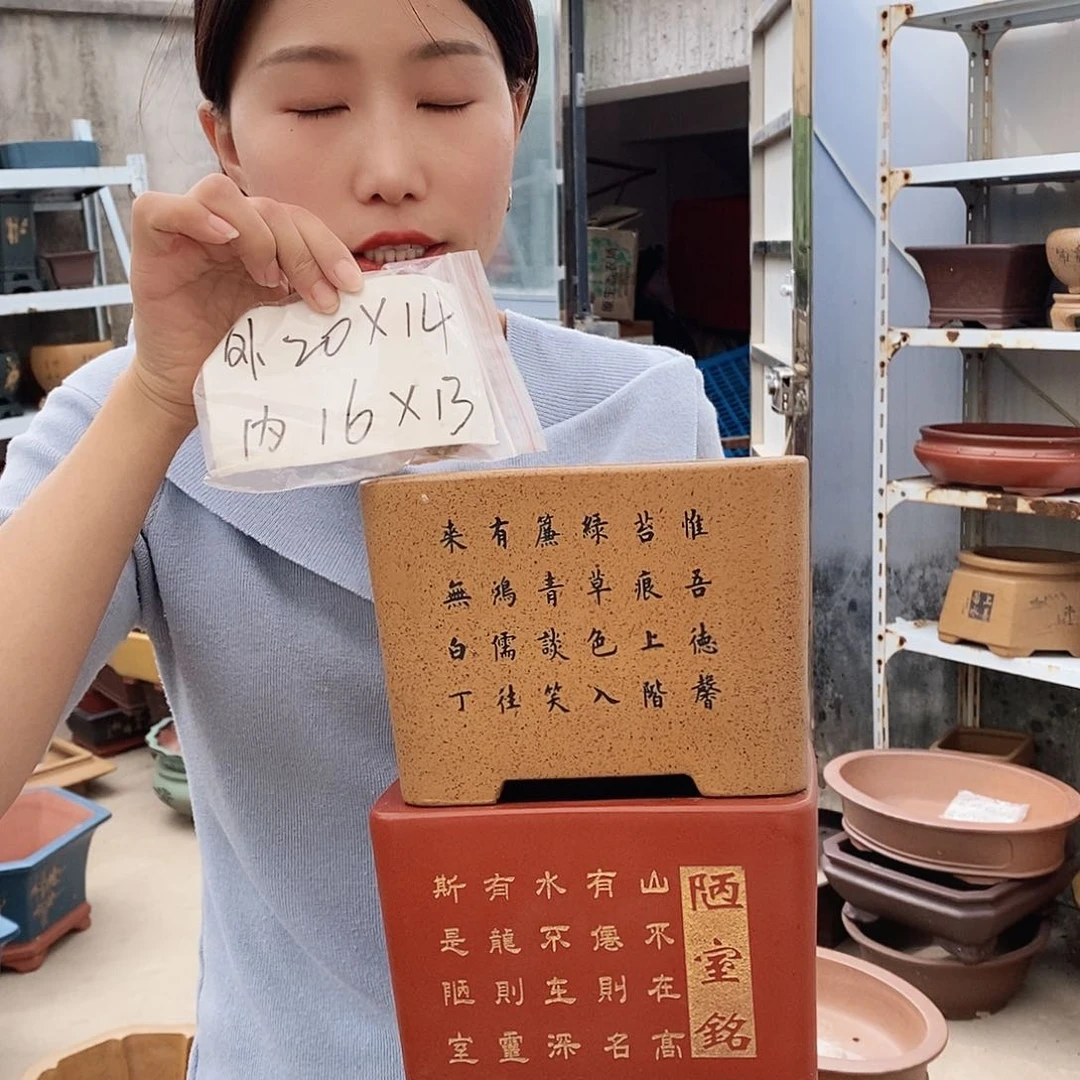 外 20X14
内 16X13
惟吾徳馨
苔痕上階
緑草色入
簾青談笑
有鴻儒往
来無白丁
陋室銘
山不在高
有僊則名
水不在深
有龍則靈
斯是陋室